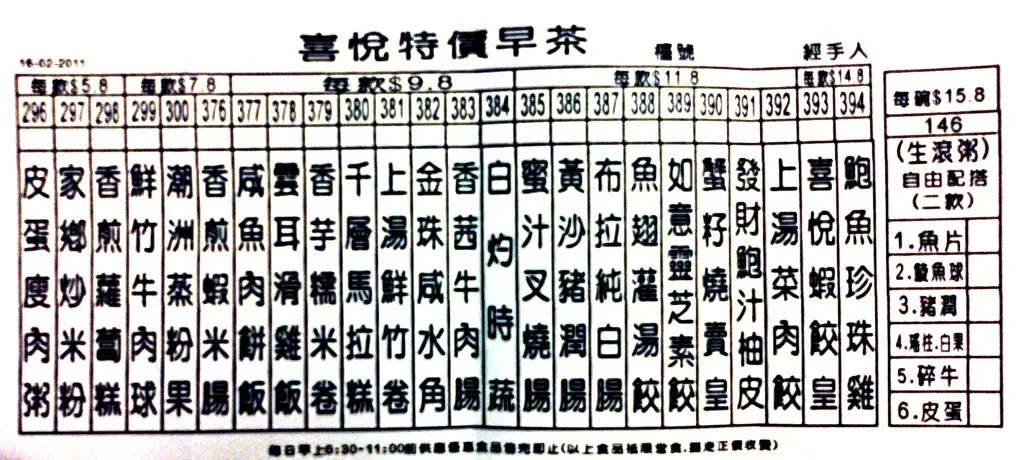 喜悅特價早茶
檯號
經手人
16-02-2011
每款$5.8
每款$7.8
每款$9.8
每款$11.8
每款$14.8
296 皮蛋瘦肉粥
297 家鄉炒米粉
298 香煎蘿蔔糕
299 鮮竹牛肉球
300 潮洲蒸粉果
376 香煎蝦米腸
377 咸魚肉餅飯
378 雲耳滑雞飯
379 香芋糯米卷
380 千層馬拉糕
381 上湯鮮竹卷
382 金珠咸水角
383 香茜牛肉腸
384 白灼時蔬
385 蜜汁叉燒腸
386 黃沙豬潤腸
387 布拉純白腸
388 魚翅灌湯餃
389 如意靈芝素餃
390 蟹籽燒賣皇
391 發財鮑汁柚皮
392 上湯菜肉餃
393 喜悅蝦餃皇
394 鮑魚珍珠雞
每碗$15.8
146
(生滾粥)
自由配搭
(二款)
1.魚片
2.鯪魚球
3.豬潤
4.瑤柱.白果
5.碎牛
6.皮蛋
每日早上6:30-11:00前供應優惠食品售完即止(以上食品祗限堂食,外走正價收費)